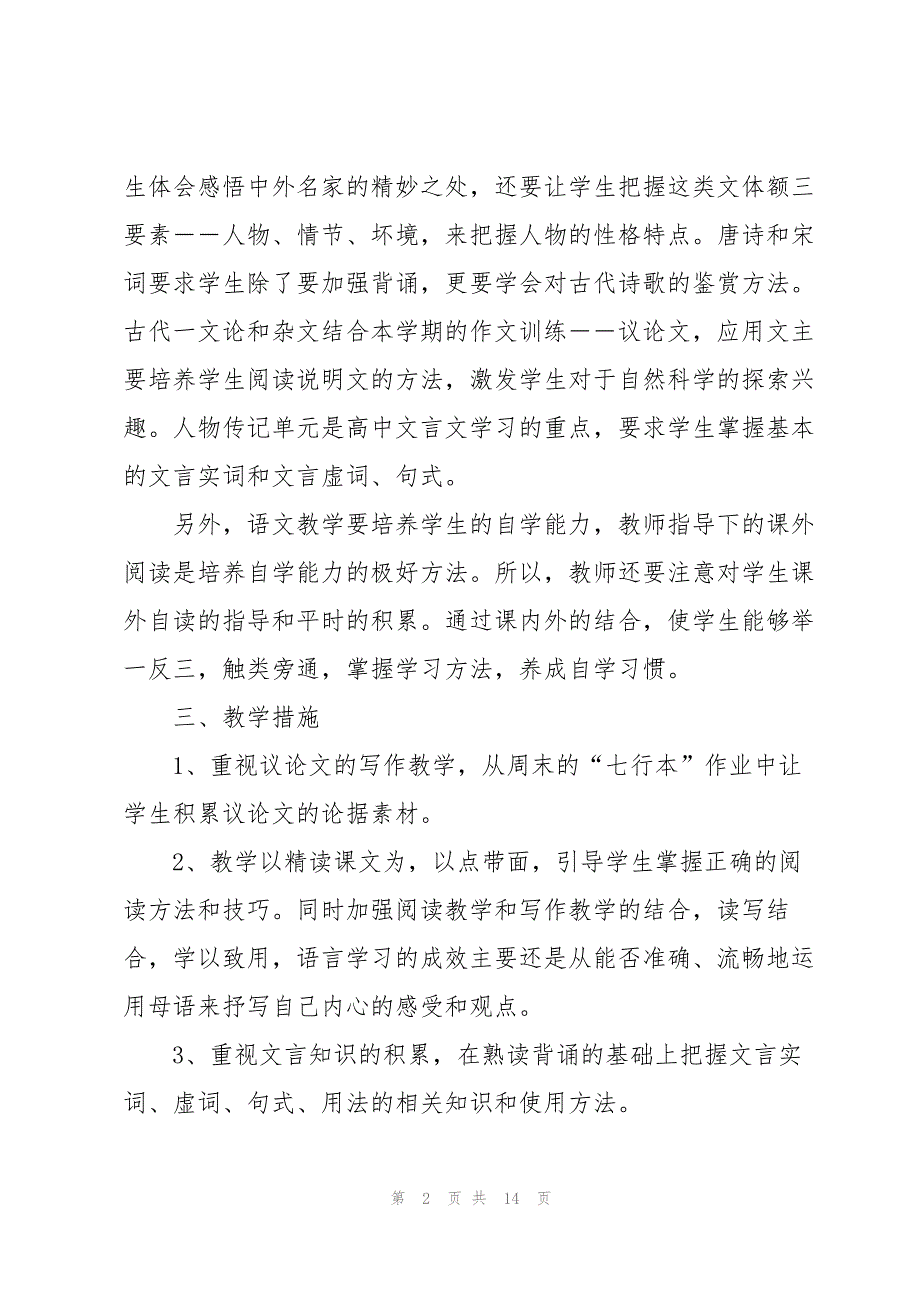 生体会感悟中外名家的精妙之处，还要让学生把握这类文体额三
要素－－人物、情节、坏境，来把握人物的性格特点。唐诗和宋
词要求学生除了要加强背诵，更要学会对古代诗歌的鉴赏方法。
古代一文论和杂文结合本学期的作文训练－－议论文，应用文主
要培养学生阅读说明文的方法，激发学生对于自然科学的探索兴
趣。人物传记单元是高中文言文学习的重点，要求学生掌握基本
的文言实词和文言虚词、句式。
另外，语文教学要培养学生的自学能力，教师指导下的课外
阅读是培养自学能力的极好方法。所以，教师还要注意对学生课
外自读的指导和平时的积累。通过课内外的结合，使学生能够举
一反三，触类旁通，掌握学习方法，养成自学习惯。
三、教学措施
1、重视议论文的写作教学，从周末的“七行本”作业中让
学生积累议论文的论据素材。
2、教学以精读课文为，以点带面，引导学生掌握正确的阅
读方法和技巧。同时加强阅读教学和写作教学的结合，读写结
合，学以致用，语言学习的成效主要还是从能否准确、流畅地运
用母语来抒写自己内心的感受和观点。
3、重视文言知识的积累，在熟读背诵的基础上把握文言实
词、虚词、句式、用法的相关知识和使用方法。
第 2 页 共 14 页